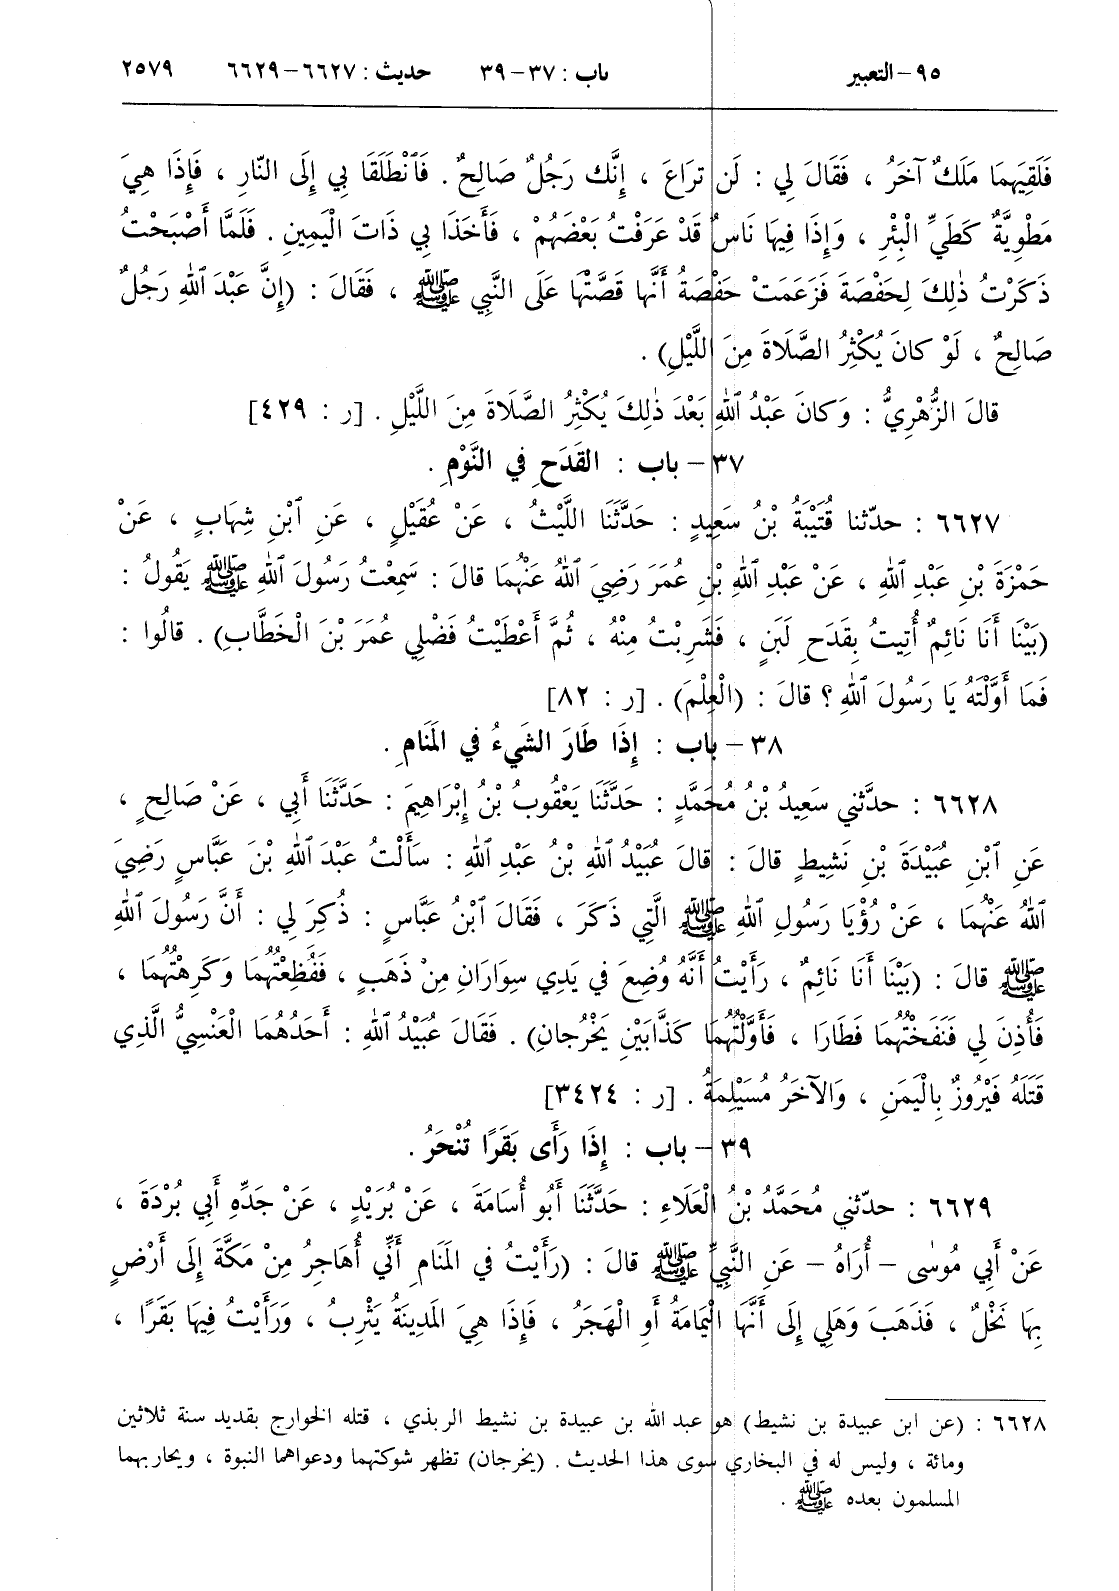 ٩٥ - التعبير باب : ٣٧ - ٣٩ حديث : ٦٦٢٧ - ٦٦٢٩ ٢٥٧٩
فَلَقِيَهُمَا مَلَكٌ آخَرُ ، فَقَالَ لِي : لَن تراعَ ، إِنَّك رَجُلٌ صَالِحٌ . فَٱنْطَلَقَا بِي إِلَى النّارِ ، فَإِذَا هِيَ
مَطْوِيَّةٌ كَطَيِّ الْبِئْرِ ، وَإِذَا فِيهَا نَاسٌ قَدْ عَرَفْتُ بَعْضَهُمْ ، فَأَخَذَا بِي ذَاتَ الْيَمِينِ . فَلَمَّا أَصْبَحْتُ
ذَكَرْتُ ذٰلِكَ لِحَفْصَةَ فَزَعَمَتْ حَفْصَةُ أَنَّها قَصَّتْها عَلَى النَّبِي ﷺ ، فَقَالَ : (إِنَّ عَبْدَ ٱللهِ رَجُلٌ
صَالِحٌ ، لَوْ كانَ يُكْثِرُ الصَّلَاةَ مِنَ اللَّيْلِ) .
قالَ الزُّهْرِيُّ : وَكانَ عَبْدُ ٱللهِ بَعْدَ ذٰلِكَ يُكْثِرُ الصَّلَاةَ مِنَ اللَّيْلِ . [ر : ٤٢٩]
٣٧ - باب : القَدَحِ في النَّوْمِ .
٦٦٢٧ : حدّثنا قُتَيْبَةُ بْنُ سَعِيدٍ : حَدَّثَنَا اللَّيْثُ ، عَنْ عُقَيْلٍ ، عَنِ ٱبْنِ شِهَابٍ ، عَنْ
حَمْزَةَ بْنِ عَبْدِ ٱللهِ ، عَنْ عَبْدِ ٱللهِ بْنِ عُمَرَ رَضِيَ ٱللهُ عَنْهُمَا قالَ : سَمِعْتُ رَسُولَ ٱللهِ ﷺ يَقُولُ :
(بَيْنَا أَنَا نَائِمٌ أُتِيتُ بِقَدَحِ لَبَنٍ ، فَشَرِبْتُ مِنْهُ ، ثُمَّ أَعْطَيْتُ فَضْلِي عُمَرَ بْنَ الْخَطَّابِ) . قالُوا :
فَمَا أَوَّلْتَهُ يَا رَسُولَ ٱللهِ ؟ قالَ : (الْعِلْمَ) . [ر : ٨٢]
٣٨ - باب : إِذَا طَارَ الشَّيءُ في المَنَامِ .
٦٦٢٨ : حدَّثني سَعِيدُ بْنُ مُحَمَّدٍ : حَدَّثَنَا يَعْقُوبُ بْنُ إِبْرَاهِيمَ : حَدَّثَنَا أَبِي ، عَنْ صَالِحٍ ،
عَنِ ٱبْنِ عُبَيْدَةَ بْنِ نَشِيطٍ قالَ : قالَ عُبَيْدُ ٱللهِ بْنُ عَبْدِ ٱللهِ : سَأَلْتُ عَبْدَ ٱللهِ بْنَ عَبَّاسٍ رَضِيَ
ٱللهُ عَنْهُمَا ، عَنْ رُؤْيَا رَسُولِ ٱللهِ ﷺ الَّتِي ذَكَرَ ، فَقَالَ ٱبْنُ عَبَّاسٍ : ذُكِرَ لِي : أَنَّ رَسُولَ ٱللهِ
ﷺ قالَ : (بَيْنَا أَنَا نَائِمٌ ، رَأَيْتُ أَنَّهُ وُضِعَ في يَدِي سِوَارَانِ مِنْ ذَهَبٍ ، فَفُظِعْتُهُمَا وَكَرِهْتُهُمَا ،
فَأُذِنَ لِي فَنَفَخْتُهُمَا فَطَارَا ، فَأَوَّلْتُهُمَا كَذَّابَيْنِ يَخْرُجانِ) . فَقَالَ عُبَيْدُ ٱللهِ : أَحَدُهُمَا الْعَنْسِيُّ الَّذِي
قَتَلَهُ فَيْرُوزٌ بِالْيَمَنِ ، وَالآخَرُ مُسَيْلِمَةُ . [ر : ٣٤٢٤]
٣٩ - باب : إِذَا رَأَى بَقَرًا تُنْحَرُ .
٦٦٢٩ : حدّثني مُحَمَّدُ بْنُ الْعَلَاءِ : حَدَّثَنَا أَبُو أُسَامَةَ ، عَنْ بُرَيْدٍ ، عَنْ جَدِّهِ أَبِي بُرْدَةَ ،
عَنْ أَبِي مُوسٰى - أُرَاهُ - عَنِ النَّبِيِّ ﷺ قالَ : (رَأَيْتُ في المَنَامِ أَنِّي أُهَاجِرُ مِنْ مَكَّةَ إِلَى أَرْضٍ
بِهَا نَخْلٌ ، فَذَهَبَ وَهَلِي إِلَى أَنَّهَا الْيَمَامَةُ أَوِ الْهَجَرُ ، فَإِذَا هِيَ المَدِينَةُ يَثْرِبُ ، وَرَأَيْتُ فِيهَا بَقَرًا ،
٦٦٢٨ : (عن ابن عبيدة بن نشيط) هو عبد الله بن عبيدة بن نشيط الربذي ، قتله الخوارج بقديد سنة ثلاثين
ومائة ، وليس له في البخاري سوى هذا الحديث . (يخرجان) تظهر شوكتهما ودعواهما النبوة ، ويحاربهما
المسلمون بعده ﷺ .